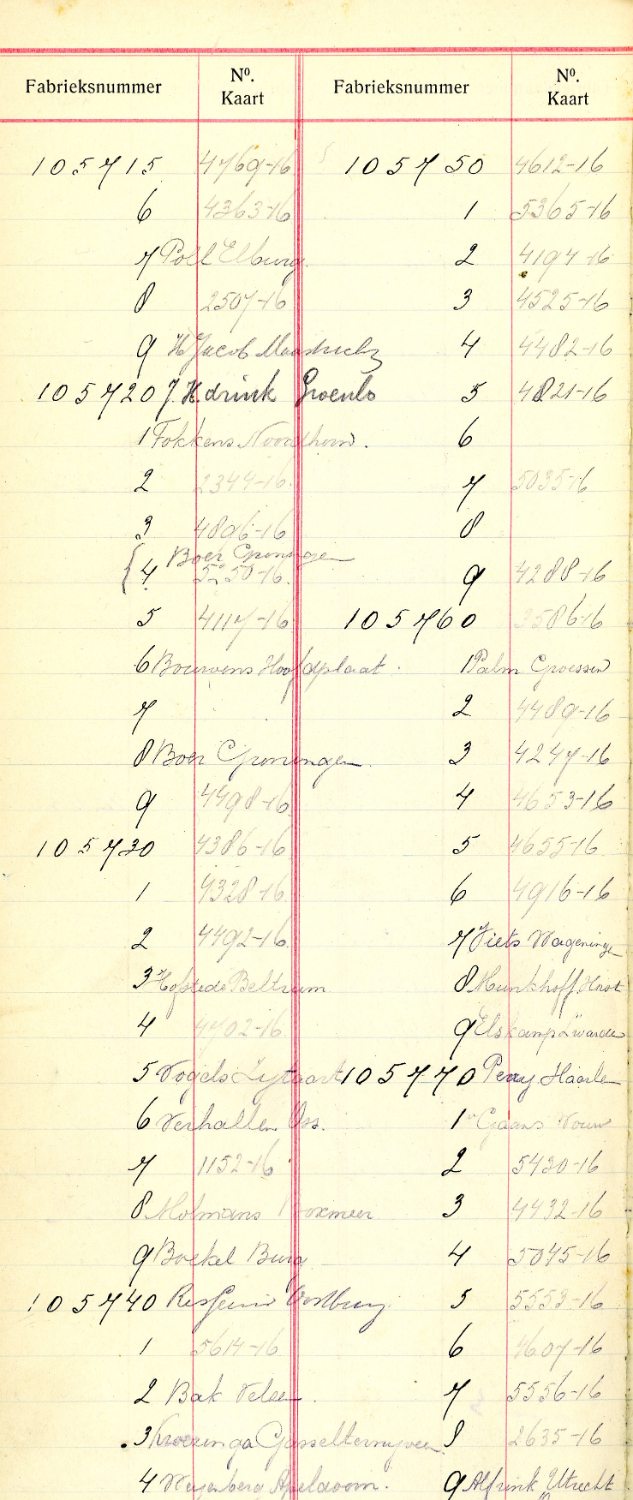 Fabrieksnummer No. Kaart Fabrieksnummer No. Kaart
105715 4769-16
6 4363-16
7 Poll Elburg.
8 2507-16
9 H Jacob Maastricht
105720 J. H.drink Groenlo
1 Fokkens Noordhorn.
2 2344-16.
3 4896-16
Boer Groningen
4 5250-16.
5 4117-16
6 Bouwens Hoofdplaat.
7
8 Boer Groningen.
9 4498-16
105730 4386-16
1 4328-16
2 4492-16
3 Hofstede Beltrum
4 4702-16
5 Vogels Zijtaart
6 Verhallen Oss.
7 1152-16
8 Molmans Boxmeer
9 Boekel Burg
105740 Oostburg.
1 5614-16
2 Bak Velsen.
3 Kroezenga Gasselternijveen
4 Weyenberg Apeldoorn.
105750 4612-16
1 5365-16
2 4197-16
3 4525-16
4 4482-16
5 4821-16
6
7 5035-16
8
9 4288-16
105760 3586-16
1 Palm Groessen
2 4489-16
3 4247-16
4 4653-16
5 4655-16
6 4916-16
7 Viets Wageningen
8 Munkhoff Horst
9 Elskamp
105770 Perry Haarlem
1 Gaans Wouw
2 5430-16
3 4432-16
4 5045-16
5 5553-16
6 4607-16
7 5556-16
8 2635-16
9 Alfrink Utrecht